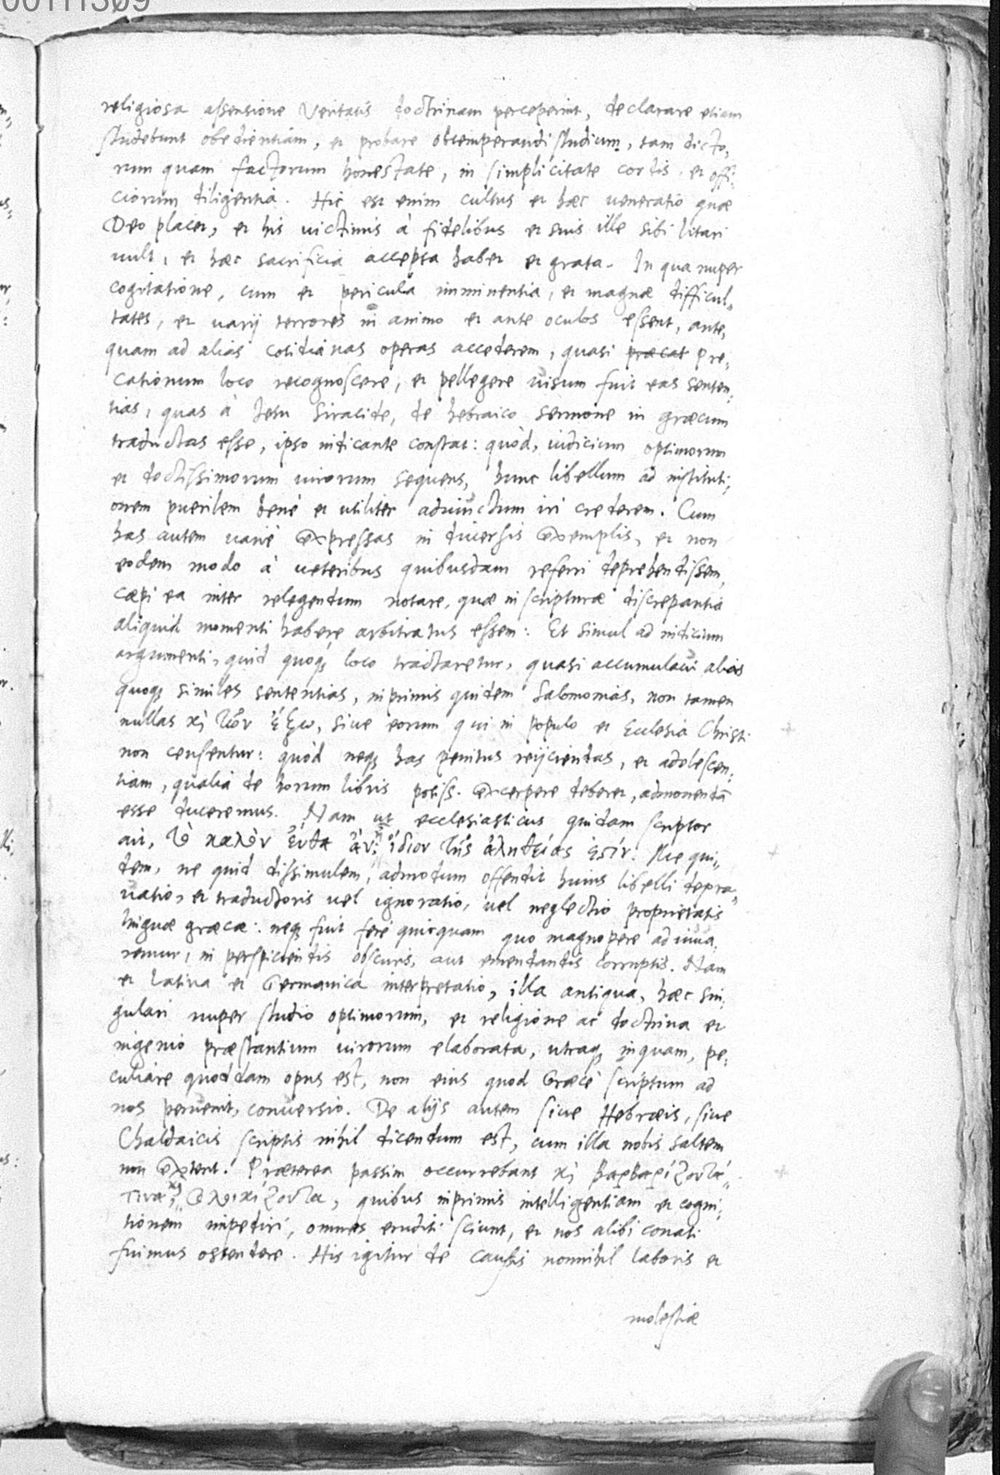 00111309
religiosa assensione Veritatis doctrinam perceperint, declarare etiam
studebunt obedientiam, et probare obtemperandi studium, tam dicto,
rum quam factorum honestate, in simplicitate cordis, et offi,
ciorum diligentia. Hic est enim cultus et hæc veneratio quæ
Deo placet, et his victimis à fidelibus et suis ille sibi litari
vult, et hæc sacrificia accepta habet et grata. In qua nuper
cogitatione, cum et pericula imminentia, et magnæ difficul,
tates, et varij terrores in animo et ante oculos essent, ante,
quam ad alias cotidianas operas accederem, quasi præcat pre,
cationum loco recognoscere, et pellegere visum fuit eas senten,
tias, quas à Jesu Siracide, de hebraico sermone in græcum
traductas esse, ipso indicante constat: quòd, iudicium optimorum
et doctissimorum virorum sequens, hunc libellum ad instituti,
onem puerilem bene et utiliter adiunctum iri crederem. Cum
has autem varie expressas in diversis exemplis, et non
eodem modo à veteribus quibusdam referri deprehendissem,
cœpi ea inter relegendum notare, quæ in scripturæ discrepantia
aliquid momenti habere arbitratus essem: Et simul ad indicium
argumenti, quid quoq loco tractaretur, quasi accumulavi alias
quoq similes sententias, inprimis quidem Salomonias, non tamen
nullas κ τῶν ἔξω, sive eorum qui in populo et Ecclesia Christi
non censentur: quòd neq has penitus reijciendas, et adolescen,
tiam, qualia de horum libris potiss. excerpere deberet, admonendã
esse duceremus. Nam ut ecclesiasticus quidam scriptor
ait, τὸ καλὸν ἔνθα ἂν ἴδιον τῆς ἀληθείας ἐστίν. Me qui,
dem, ne quid dissimulem, admodum offendit huius libelli depra,
vatio, et traductoris vel ignoratio, vel neglectio proprietatis
linguæ græcæ: neq fuit fere quicquam quo magnopere adiuva,
remur, in perspiciendis obscuris, aut emendandis corruptis. Nam
et Latina et Germanica interpretatio, illa antiqua, hæc sin,
gulari nuper studio optimorum, et religione ac doctrina et
ingenio præstantium virorum elaborata, utraq inquam, pe,
culiare quoddam opus est, non eius quod Græcè scriptum ad
nos pervenit, conversio. De alijs autem sive Hebræis, sive
Chaldaicis scriptis nihil dicendum est, cum illa nobis saltem
non extent. Præterea passim occurrebant κ βαρβαρίζοντά
τινα σολοικίζοντα, quibus inprimis intelligentiam et cogni,
tionem impediri, omnes eruditi sciunt, et nos alibi conati
fuimus ostendere. His igitur de causis nonnihil laboris et
molestiæ